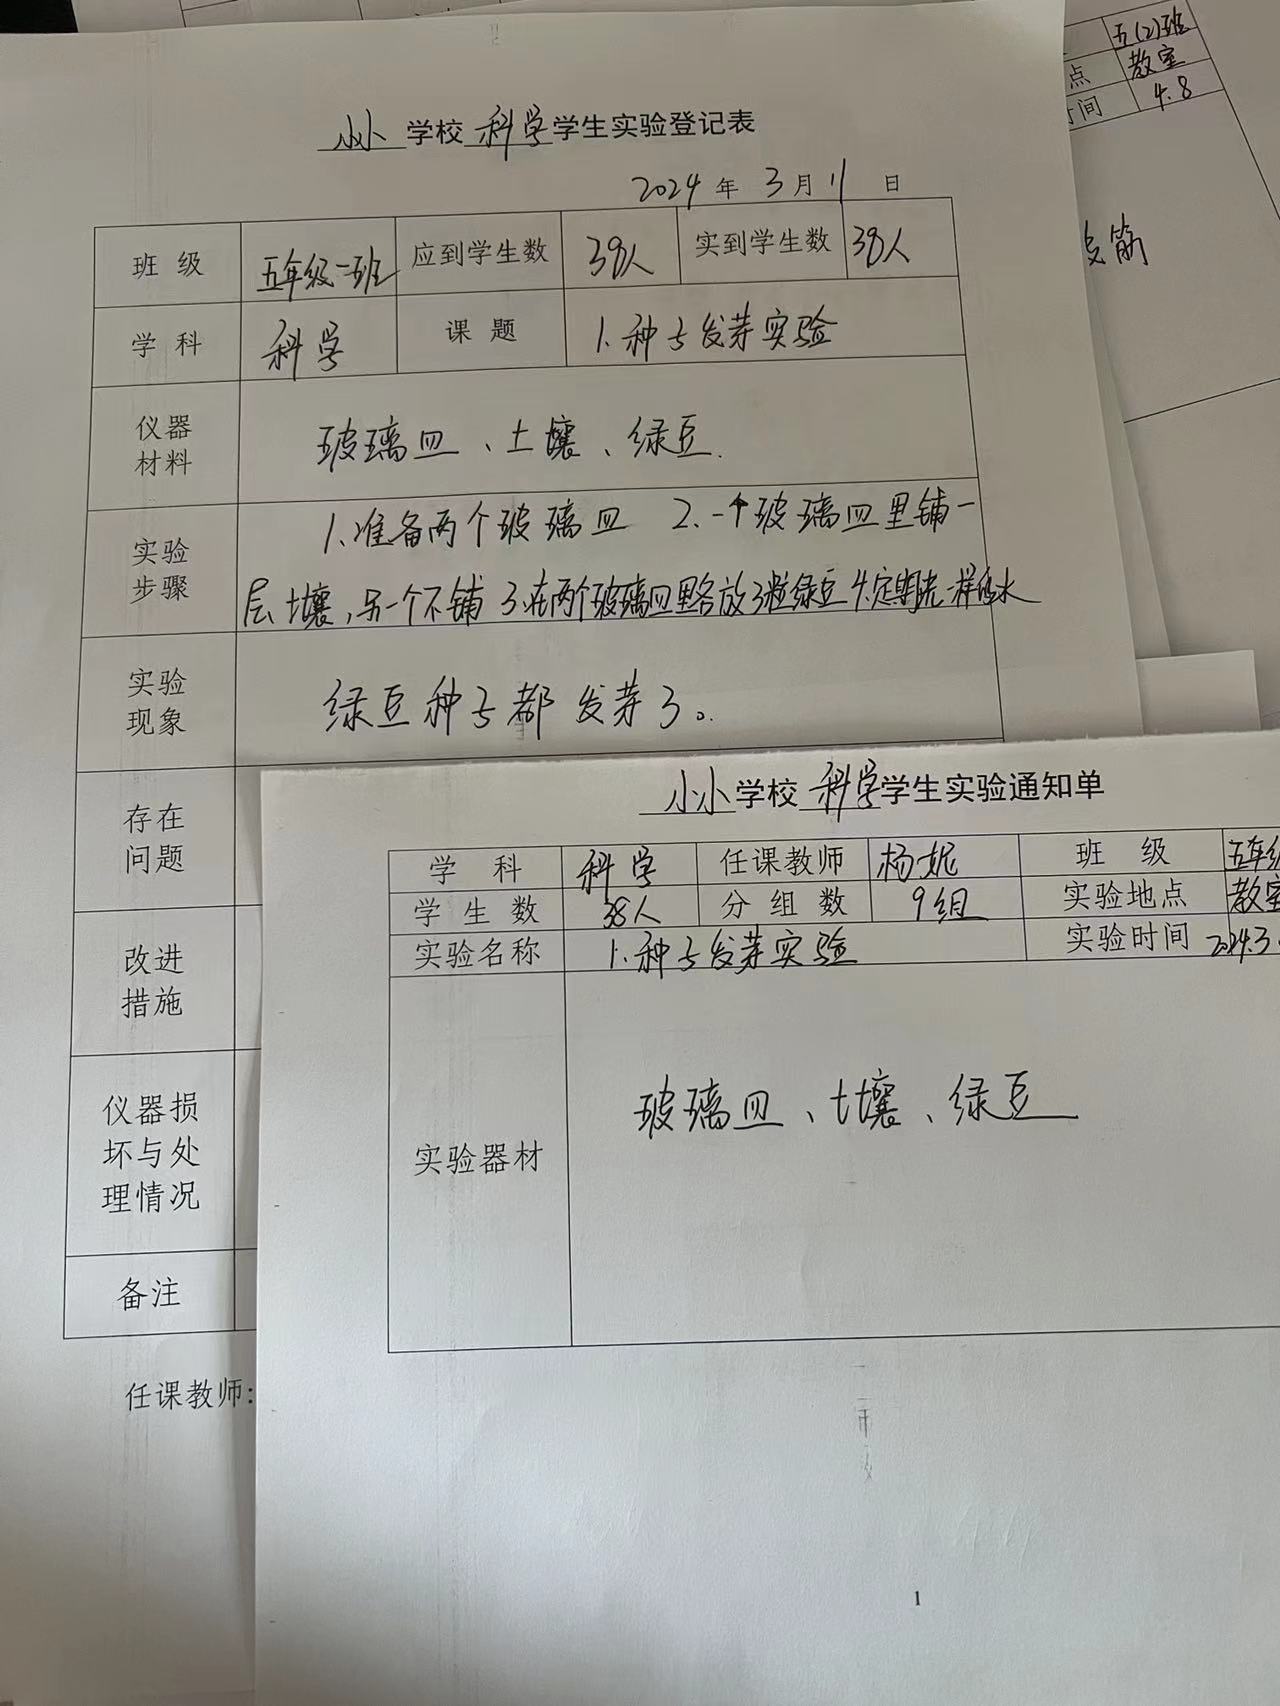 小小学校科学学生实验登记表
2024年3月11日
班级 五年级一班 应到学生数 38人 实到学生数 38人
学科 科学 课题 1.种子发芽实验
仪器材料 玻璃皿、土壤、绿豆.
实验步骤 1.准备两个玻璃皿 2.一个玻璃皿里铺一
层土壤,另一个不铺 3.在两个玻璃皿里各放3粒绿豆 4.定期浇一样的水
实验现象 绿豆种子都发芽了。
存在问题
改进措施
仪器损坏与处理情况
备注
任课教师:
五(2)班
点 教室
时间 4.8
皮筋
小小学校科学学生实验通知单
学科 科学 任课教师 杨妮 班级 五年级
学生数 38人 分组数 9组 实验地点 教室
实验名称 1.种子发芽实验 实验时间 2024.3.
实验器材 玻璃皿、土壤、绿豆
1